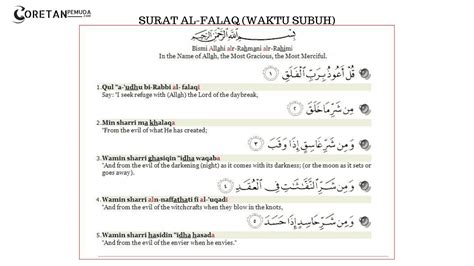 CORETANPEMUDA.com
SURAT AL-FALAQ (WAKTU SUBUH)
بِسْمِ اللَّهِ الرَّحْمَٰنِ الرَّحِيمِ
Bismi Allahi alr-Rahmani alr-Rahimi
In the Name of Allah, the Most Gracious, the Most Merciful.
قُلْ أَعُوذُ بِرَبِّ الْفَلَقِ ١
1. Qul "a-'udhu bi-Rabbi al- falaqi
Say: "I seek refuge with (Allah) the Lord of the daybreak,
مِن شَرِّ مَا خَلَقَ ٢
2. Min sharri ma khalaqa
"From the evil of what He has created;
وَمِن شَرِّ غَاسِقٍ إِذَا وَقَبَ ٣
3. Wamin sharri ghasiqin "idha waqaba
"And from the evil of the darkening (night) as it comes with its darkness; (or the moon as it sets or
goes away).
وَمِن شَرِّ النَّفَّاثَاتِ فِي الْعُقَدِ ٤
4. Wamin sharri aln-naffathati fi al-'uqadi
"And from the evil of the witchcrafts when they blow in the knots,
وَمِن شَرِّ حَاسِدٍ إِذَا حَسَدَ ٥
5. Wamin sharri hasidin "idha hasada
"And from the evil of the envier when he envies."